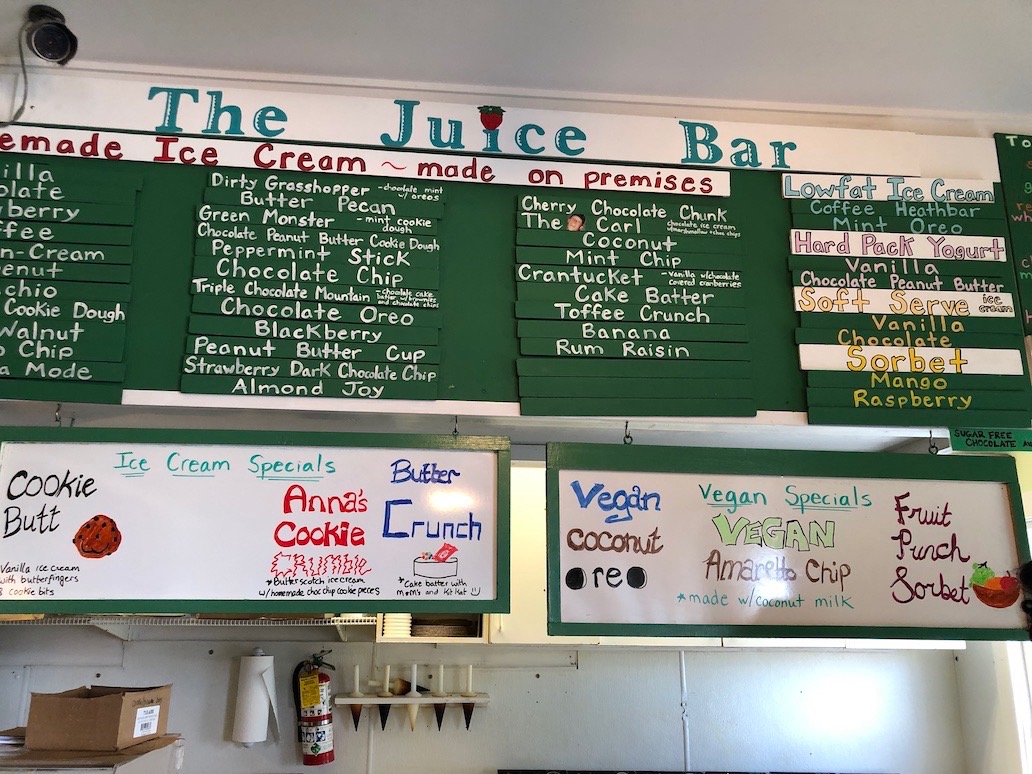 The Juice Bar
emade Ice Cream ~ made on premises
illa
olate
berry
fee
n-Cream
enut
chio
Cookie Dough
Walnut
Chip
a Mode
Dirty Grasshopper -chocolate mint w/ oreos
Butter Pecan
Green Monster -mint cookie dough
Chocolate Peanut Butter Cookie Dough
Peppermint Stick
Chocolate Chip
Triple Chocolate Mountain -chocolate cake batter w/ brownies and chocolate chips
Chocolate Oreo
Blackberry
Peanut Butter Cup
Strawberry Dark Chocolate Chip
Almond Joy
Cherry Chocolate Chunk
The Carl chocolate ice cream w/marshmallow + choc chips
Coconut
Mint Chip
Crantucket -Vanilla w/chocolate covered cranberries
Cake Batter
Toffee Crunch
Banana
Rum Raisin
Lowfat Ice Cream
Coffee Heathbar
Mint Oreo
Hard Pack Yogurt
Vanilla
Chocolate Peanut Butter
Soft Serve ice cream
Vanilla
Chocolate
Sorbet
Mango
Raspberry
To
SUGAR FREE
CHOCOLATE
Ice Cream Specials
Cookie
Butt
Vanilla ice cream
with butterfingers
& cookie bits
Anna's
Cookie
Crumble
*Butterscotch ice cream
w/homemade choc chip cookie pieces
Butter
Crunch
*Cake batter with
m&m's and Kit Kat
Vegan Specials
Vegan
coconut
oreo
VEGAN
Amaretto Chip
*made w/coconut milk
Fruit
Punch
Sorbet